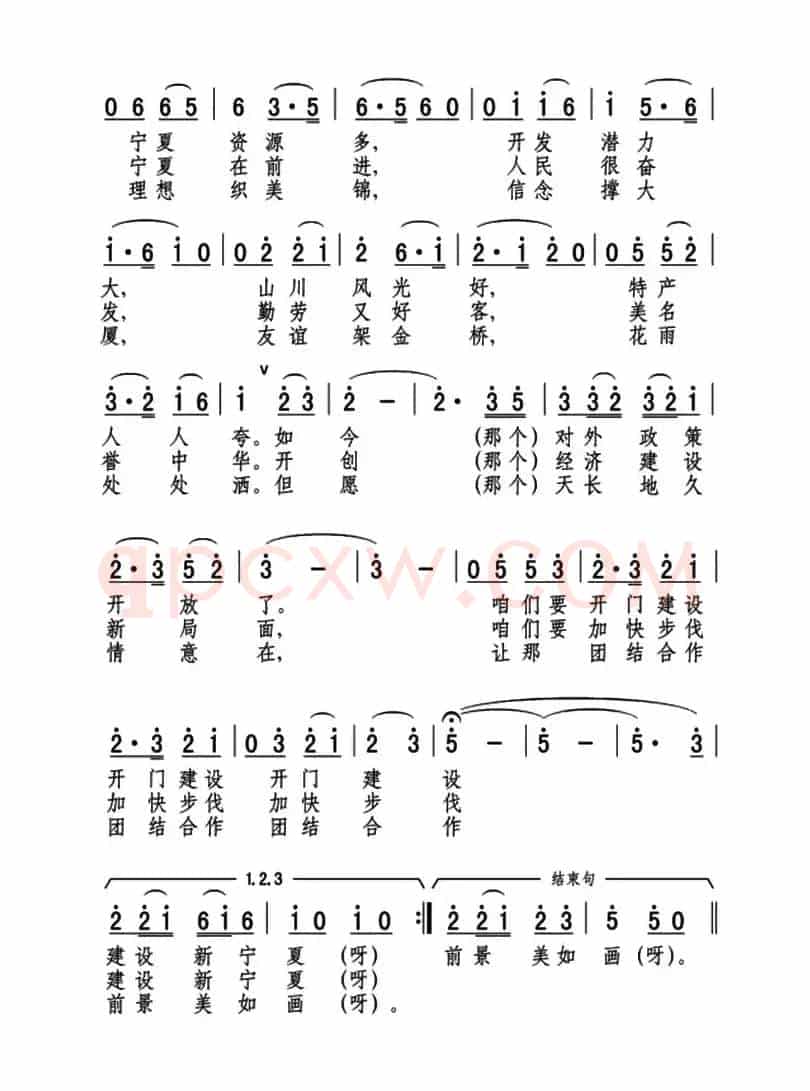 0 6 6 5 | 6 3·5 | 6·5 6 0 | 0 i i 6 | i 5·6 |
宁夏 资源 多, 开发 潜力
宁夏 在前 进, 人民 很奋
理想 织美 锦, 信念 撑大
i·6 i 0 | 0 2 2 i | 2 6·i | 2·i 2 0 | 0 5 5 2 |
大, 山川 风光 好, 特产
发, 勤劳 又好 客, 美名
厦, 友谊 架金 桥, 花雨
v
3·2 i 6 | i 2 3 | 2 – | 2· 3 5 | 3 3 2 3 2 i |
人 人 夸。如 今 (那个) 对外 政策
誉 中 华。开 创 (那个) 经济 建设
处 处 洒。但 愿 (那个) 天长 地久
2·3 5 2 | 3 – | 3 – | 0 5 5 3 | 2·3 2 i |
开 放 了。 咱们要 开门建设
新 局 面, 咱们要 加快步伐
情 意 在, 让那 团结合作
2·3 2 i | 0 3 2 i | 2 3 | 5 – | 5 – | 5· 3 |
开门建设 开门 建 设
加快步伐 加快 步 伐
团结合作 团结 合 作
1.2.3 结束句
2 2 i 6 i 6 | i 0 i 0 :‖ 2 2 i 2 3 | 5 5 0 ‖
建设 新宁 夏(呀) 前景 美如 画(呀)。
建设 新宁 夏(呀)
前景 美如 画(呀)。
qpcxw.COM